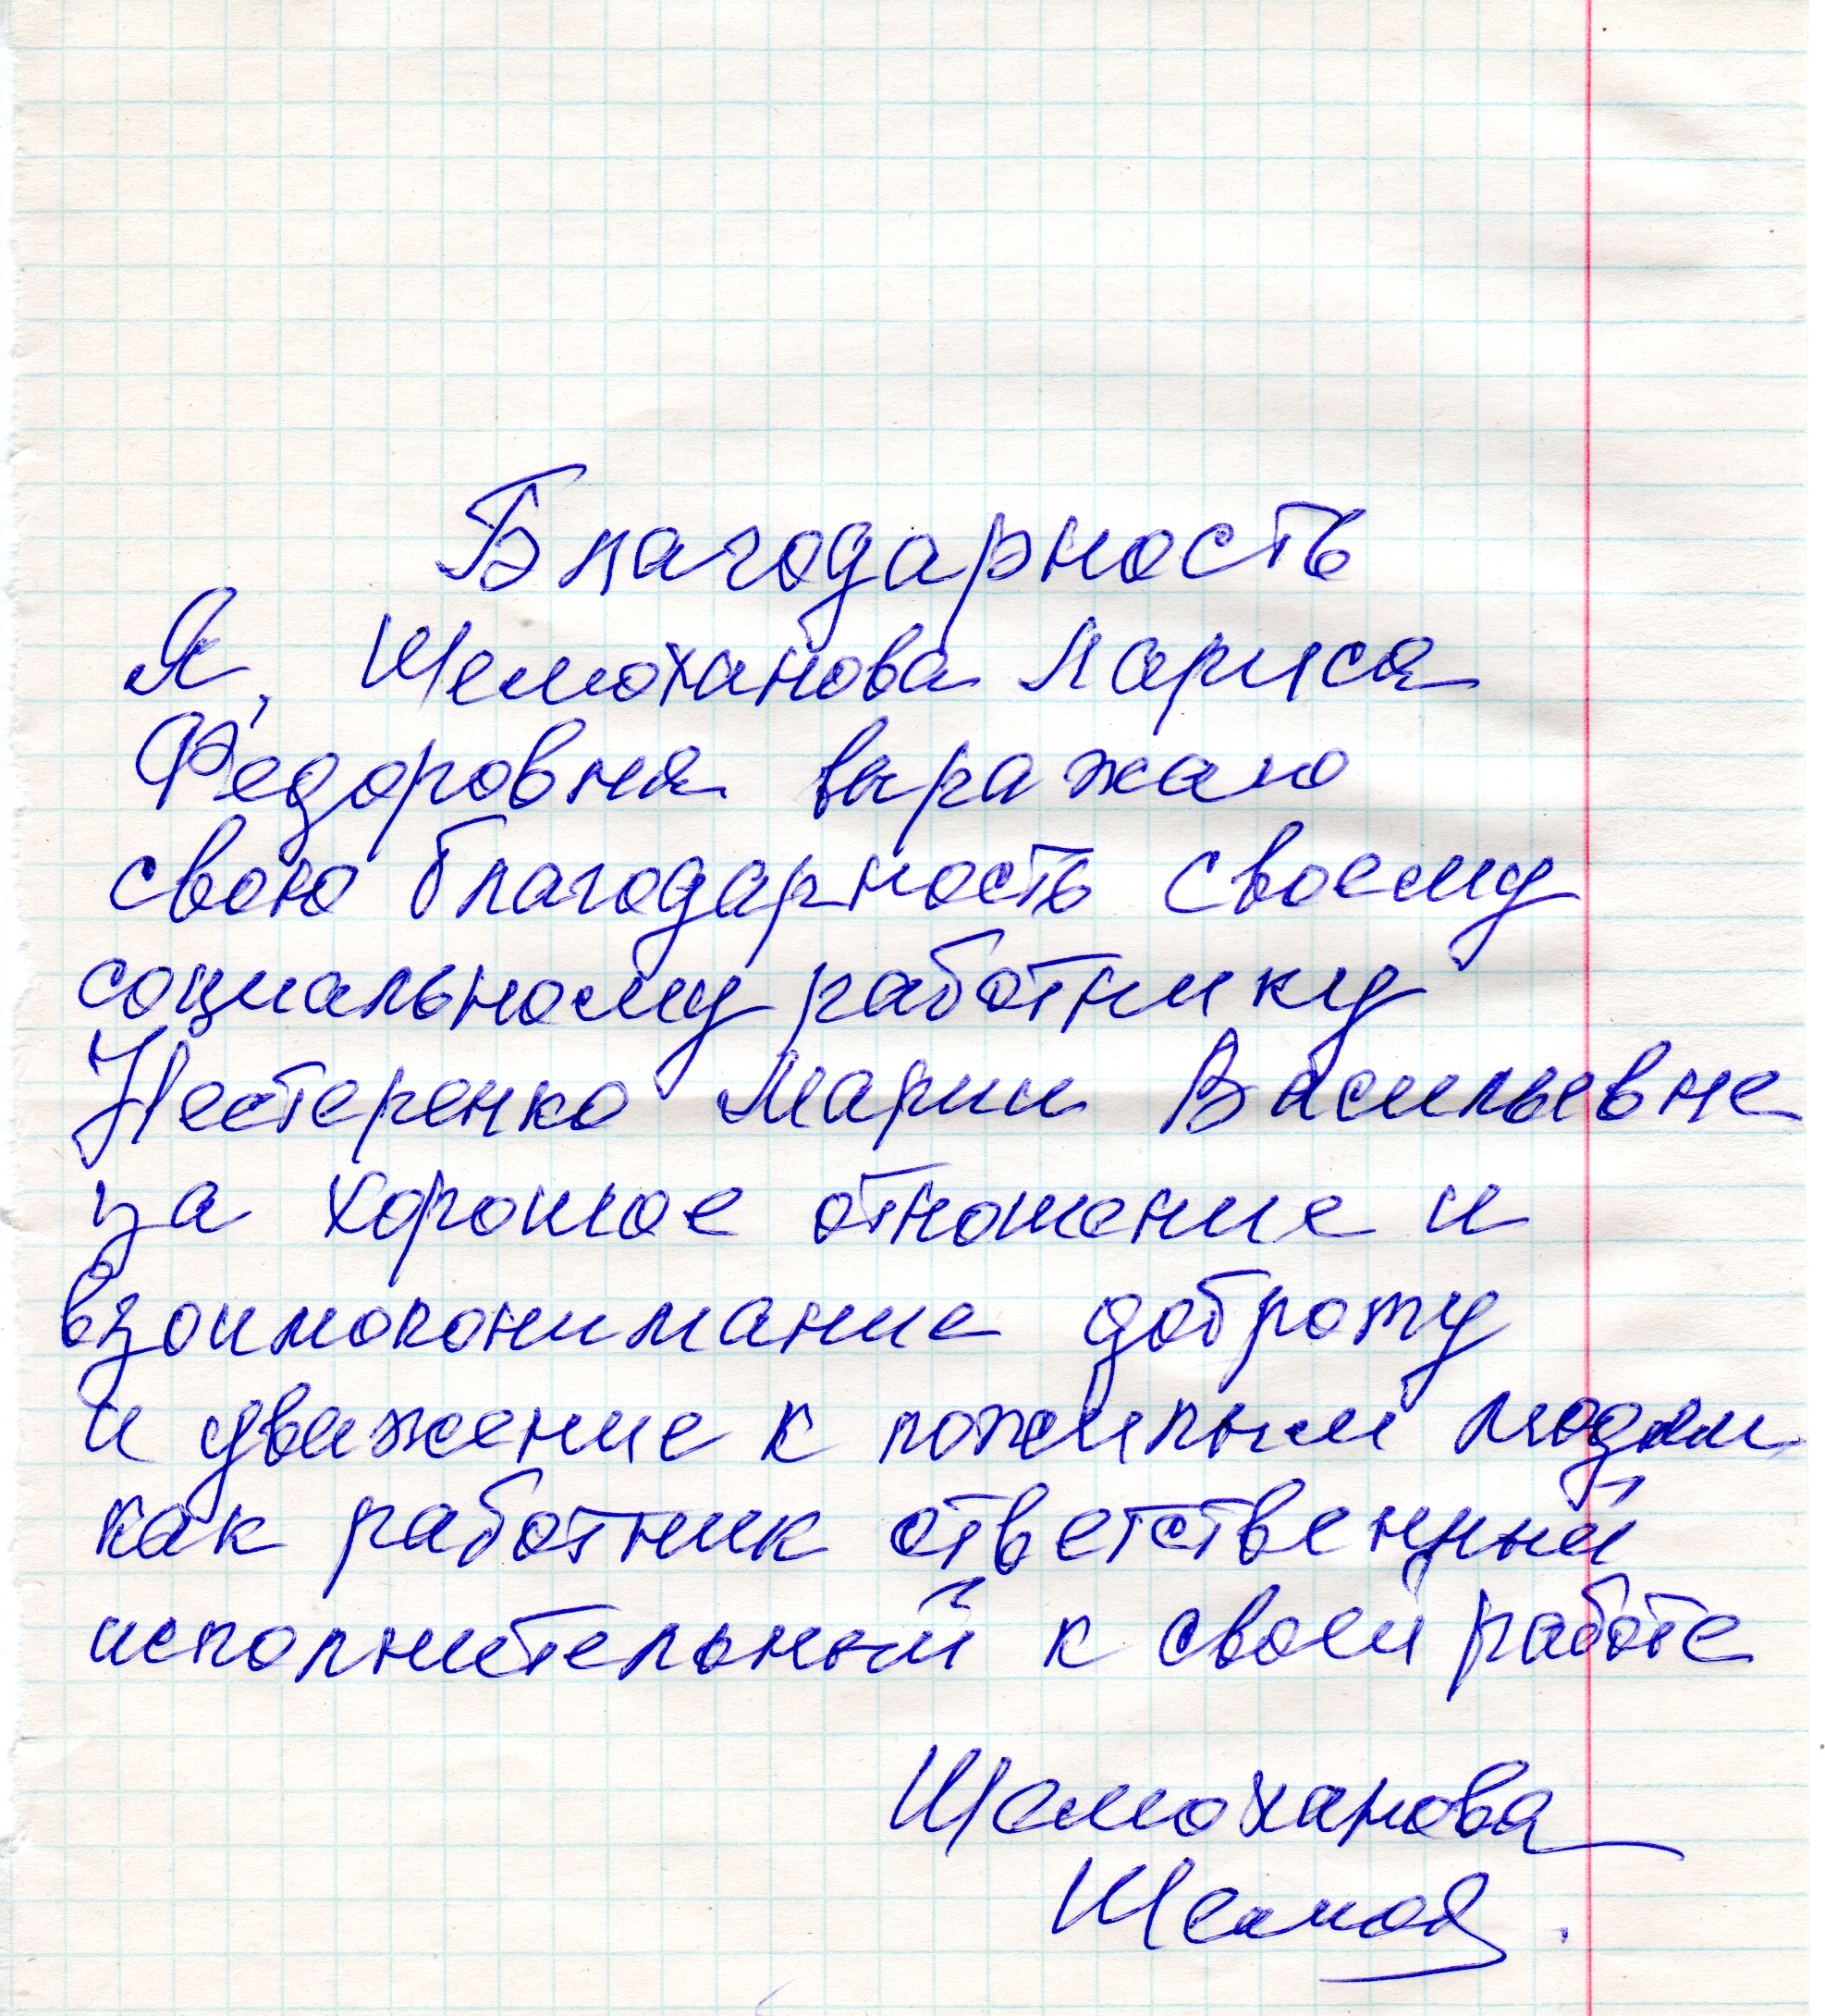 Благодарность
Я, Шемоханова Лариса
Федоровна выражаю
свою благодарность своему
социальному работнику
Нестеренко Марии Васильевне
за хорошое отношение и
взоимопонимание доброту
и уважение к пожилым людям
как работник ответственный
исполнительный к своей работе
Шемоханова